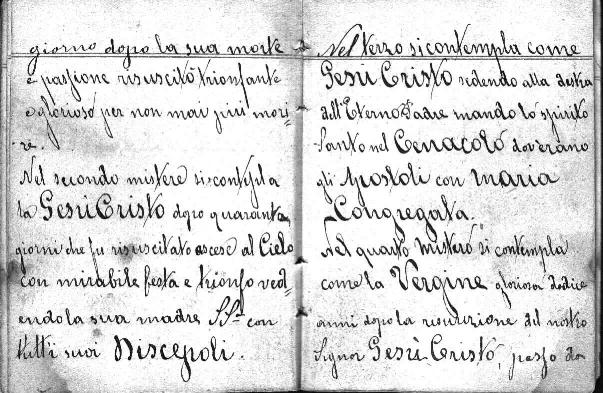 giorno dopo la sua morte
e passione risuscitò trionfante
e glorioso per non mai più mori-
re.
Nel secondo mistere si contepla
la Gesù Cristo dopo quaranta
giorni che fu risuscitato ascese al Cielo
con mirabile festa e trionfo ved-
endola sua madre SS.a con
tutti suoi Discepoli.
Nel terzo si contempla come
Gesù Cristo sedendo alla destra
dell'Eterno Padre mando lo spirito
Santo nel Cenacolo dov'erano
gli Apostoli con Maria
Congregata.
Nel quarto mistero si contempla
come la Vergine gloriosa dodice
anni dopo la risurizione del nostro
Signor Gesù Cristo, passo da